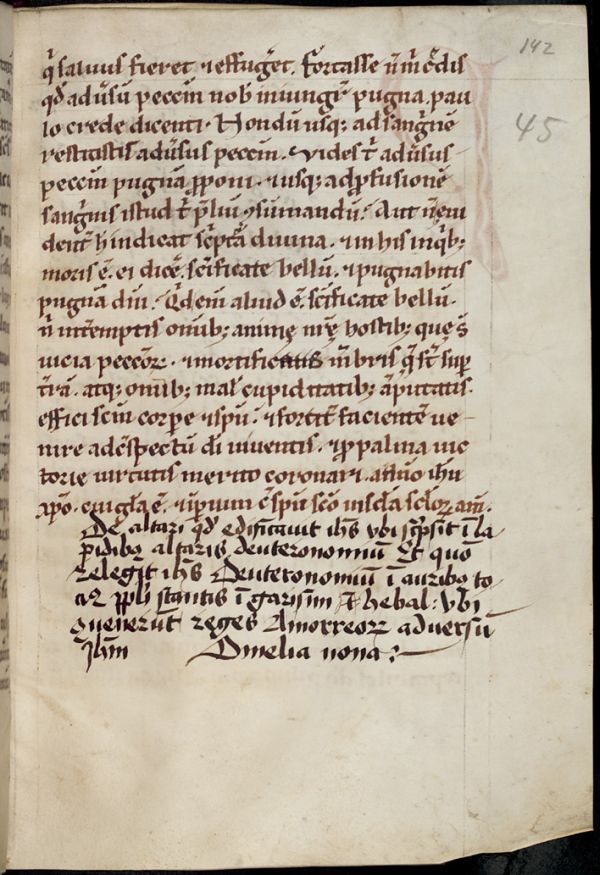 142
45
q̃ saluus fieret ⁊ effug̃et. Fortasse ñ m̃ c̃dis
qđ adũsũ peccm̃ nob̃ iniungĩ pugna. pau
lo crede dicenti. Nondũ usq; ad sang̃nẽ
restitistis adũsus peccm̃. Vides t̃ adũsus
peccm̃ pugnã p̃poni. ⁊ usq; ad p̃fusionẽ
sang̃nis istud t̃ p̃liũ ꝯsumandũ. Aut ñ eui
dent̃ h̃ indicat sc̃ptã diuina. ⁊ in his inq̃b;
moris ẽ. ei dicẽ. sc̃ificate bellũ. ⁊ pugnabitis
pugnã dñi. Q̃d eni aliud ẽ. sc̃ificate bellũ.
ñ int̃emptis omĩb; animę nr̃ę hostib; que s̃
uicia peccor̃. ⁊ mortificatis m̃bris q̃ st̃ sup̃
t̃rã. atq; omĩb; mał cupiditatib; ãputatis.
effici sc̃m corp̃e ⁊ sp̃u. ⁊ fortit̃ facientẽ ue
nire ad c̃spectũ dĩ uiuentis. ⁊ p̃ palma uic
torie uirtutis merito coronari. in xp̃o ihũ
cui gl̃a ẽ. ⁊ imp̃ium c̃ sp̃u sc̃o in sc̃la sc̃lor̃ am̃.
De altari qđ edificauit ihs̃ vbi sc̃psit ĩ la
pidibꝫ altaris deuteronomiũ Et quo
relegit ihs̃ Deuteronomiũ ĩ auribꝫ to
ciꝰ ppl̃i stantis ĩ garisim ⁊ hebal: vbi
ꝯuenerũt reges Amorreor̃ adversũ
Jhm̃ Omelia nona: